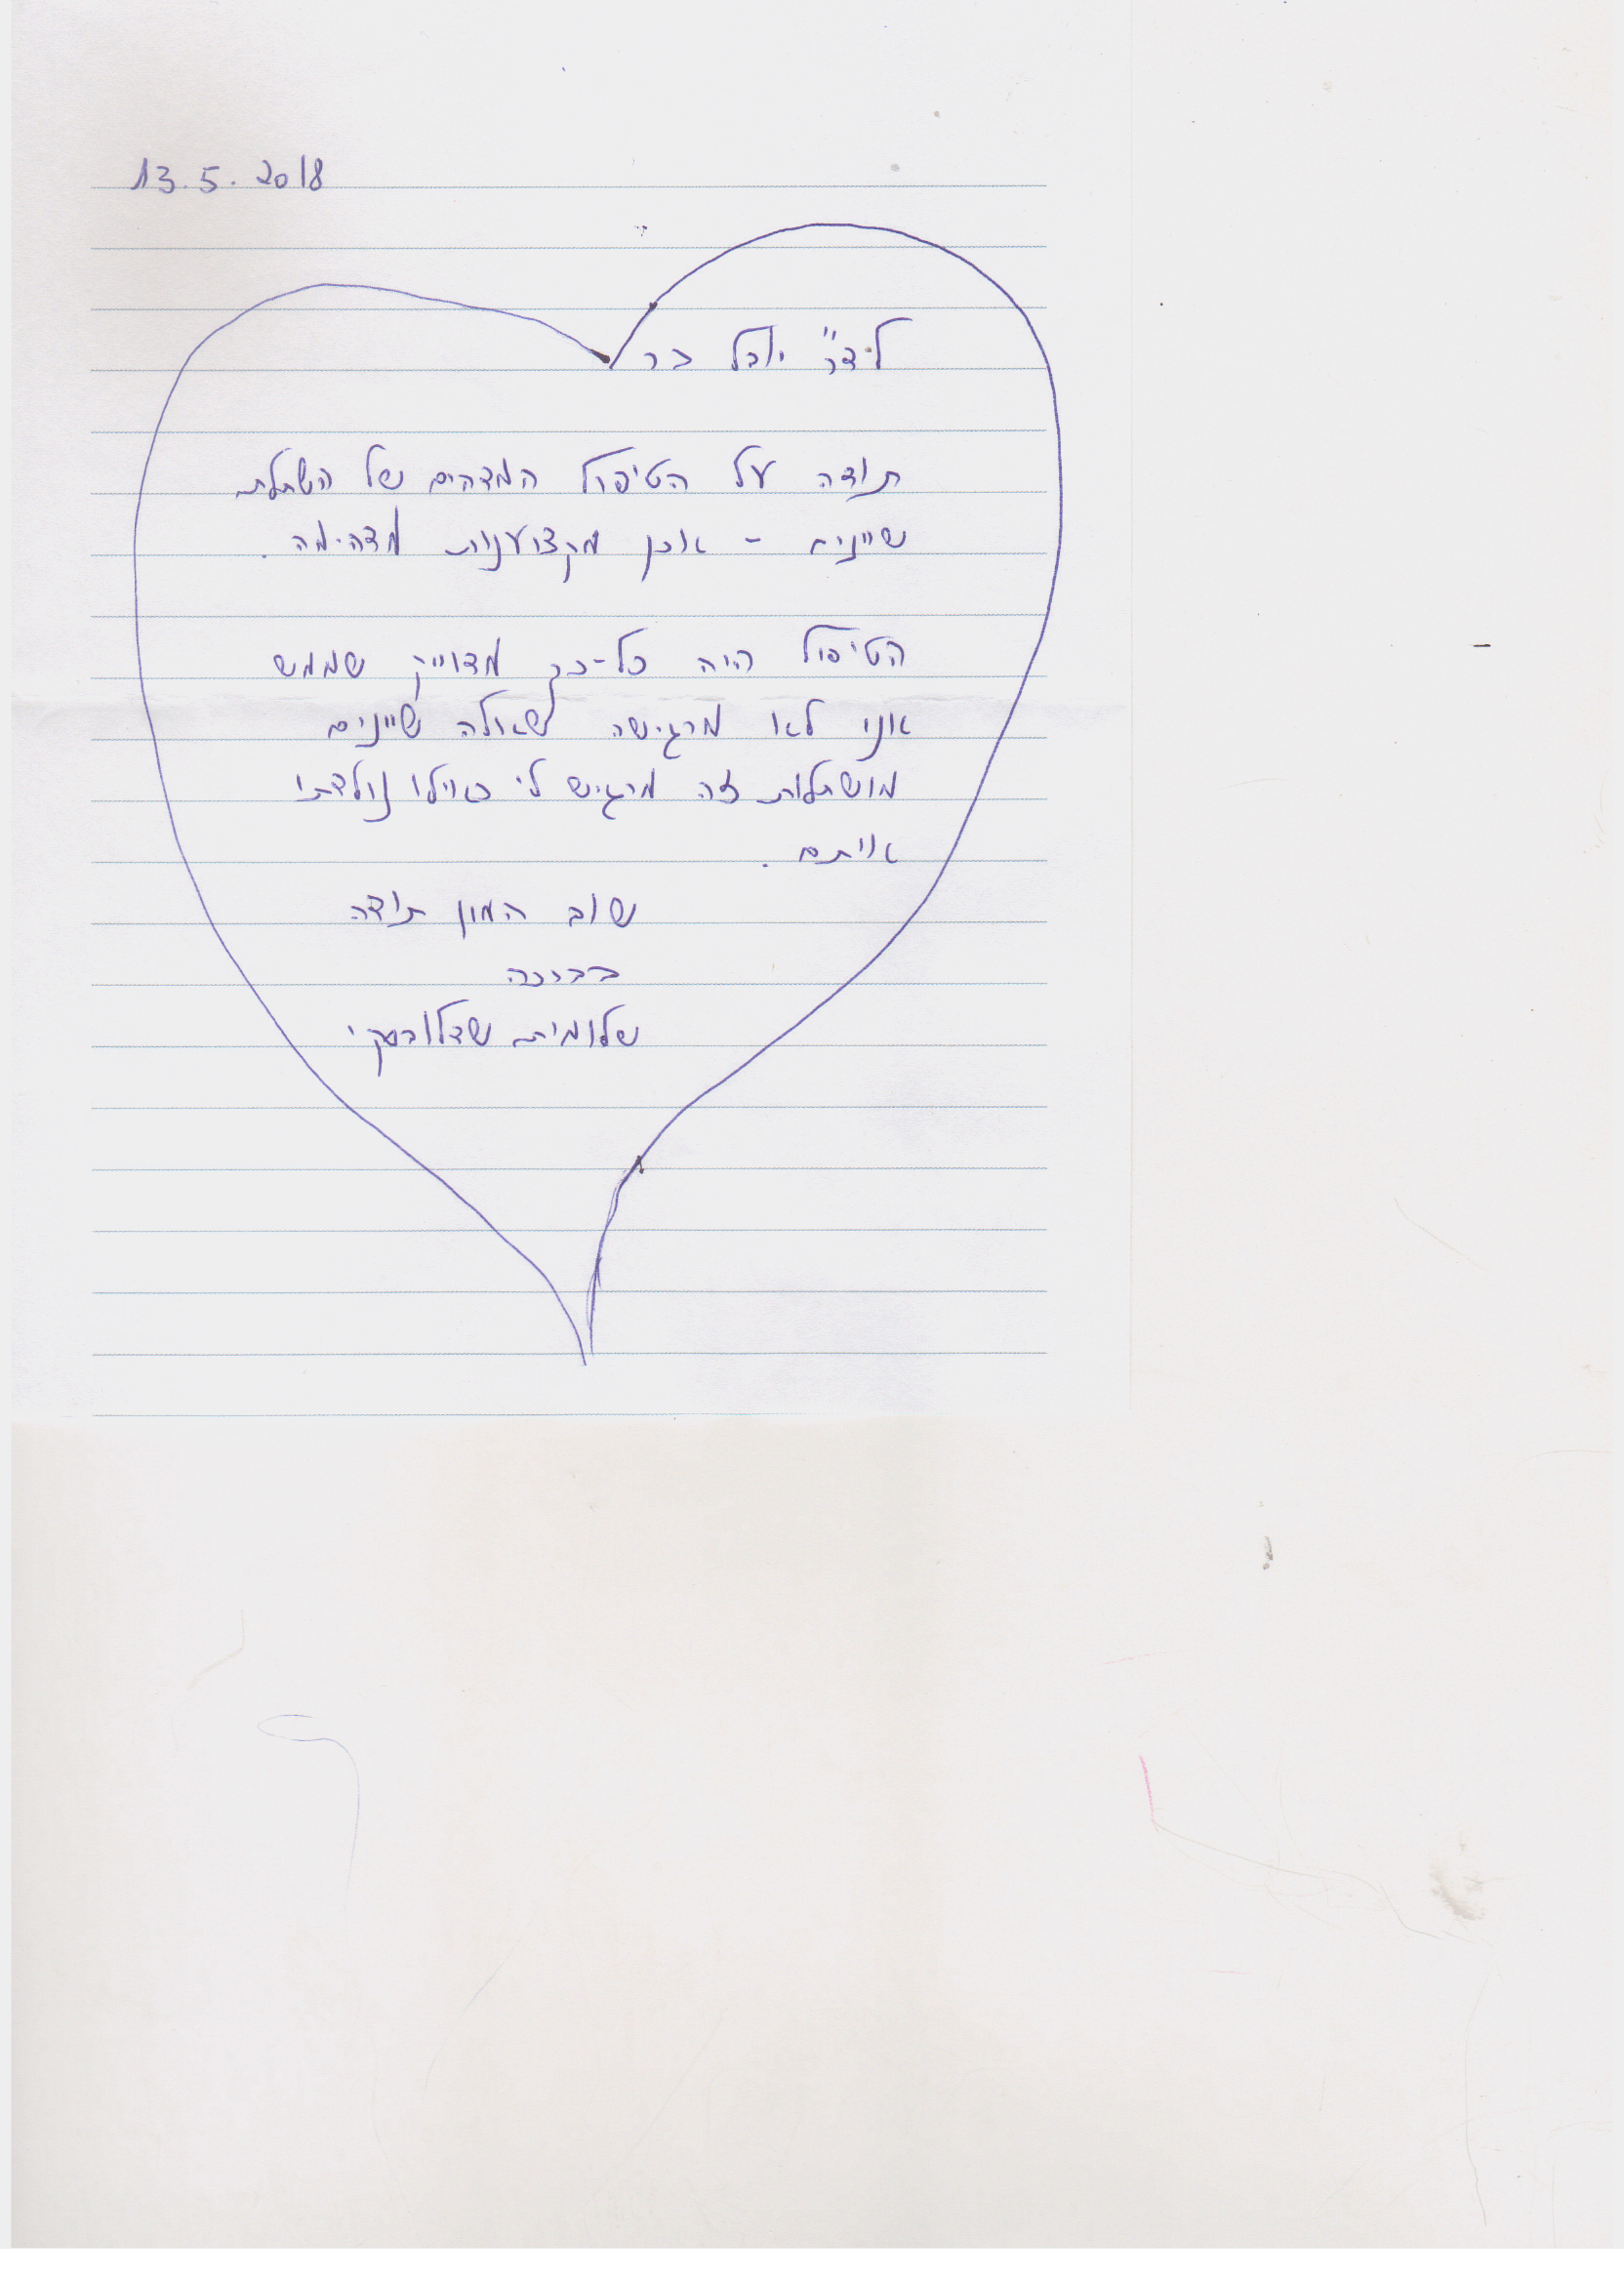 13.5.2018
לד"ר יובל בר
תודה על הטיפול המדהים של השתלת
שיניים - אכן מקצוענות מדהימה.
הטיפול היה כל-כך מדוייק שממש
אני לא מרגישה שאלה שיניים
מושתלות זה מרגיש לי כאילו נולדתי
איתם.
שוב המון תודה
בברכה
שלומית